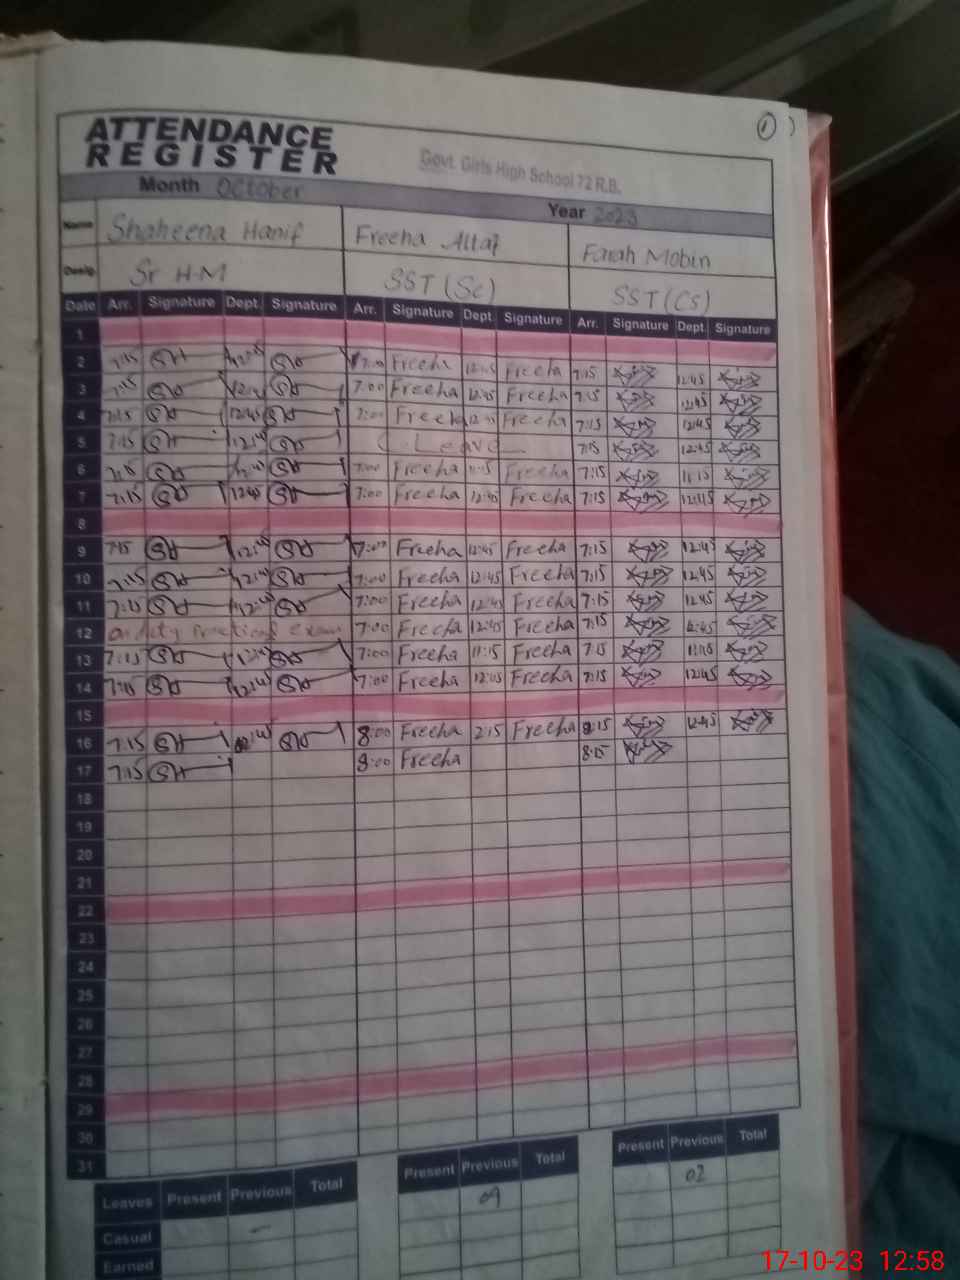 ATTENDANCE
REGISTER
Govt. Girls High School 72 R.B.
1
Month October
Year 2023
Name Shaheena Hanif Freeha Altaf Farah Mobin
Desig. Sr H-M SST (Sc) SST (CS)
Date Arr. Signature Dept. Signature Arr. Signature Dept. Signature Arr. Signature Dept. Signature
1
2 7:15 7:00 Freeha 12:45 Freeha 7:15 12:45
3 7:15 7:00 Freeha 12:45 Freeha 7:15 12:45
4 7:15 12:45 7:00 Freeha Freeha 7:15 12:45
5 7:15 Leave 7:15 12:45
6 7:15 7:00 Freeha 11:15 Freeha 7:15 11:15
7 7:15 12:45 7:00 Freeha 12:45 Freeha 7:15
8
9 7:15 7:00 Freeha 12:45 Freeha 7:15 12:45
10 7:15 7:00 Freeha 12:45 Freeha 7:15 12:45
11 7:15 7:00 Freeha 12:45 Freeha 7:15 12:45
12 on duty Practical exam 7:00 Freeha 12:45 Freeha 7:15 12:45
13 7:15 7:00 Freeha 11:15 Freeha 7:15 11:15
14 7:15 12:45 7:00 Freeha Freeha 7:15 12:45
15
16 7:15 8:00 Freeha 2:15 Freeha
17 7:15 8:00 Freeha 8:15
18
19
20
21
22
23
24
25
26
27
28
29
30
31
Leaves Present Previous Total Present Previous Total Present Previous Total
Casual 09 02
Earned
17-10-23 12:58